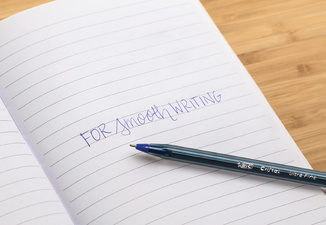 FOR smooth WRITING
BIC Cristal Ultra Fine